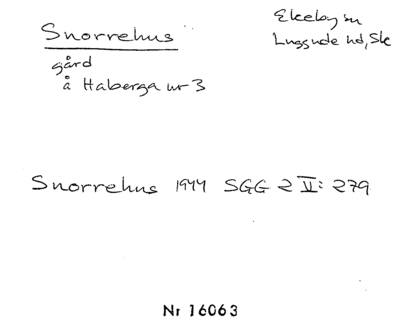 Snorrehus
Ekeby sn
Luggude hd, Sk
gård
å Haberga nr 3
Snorrehus 1944 SGG 2 V: 279
Nr 16063